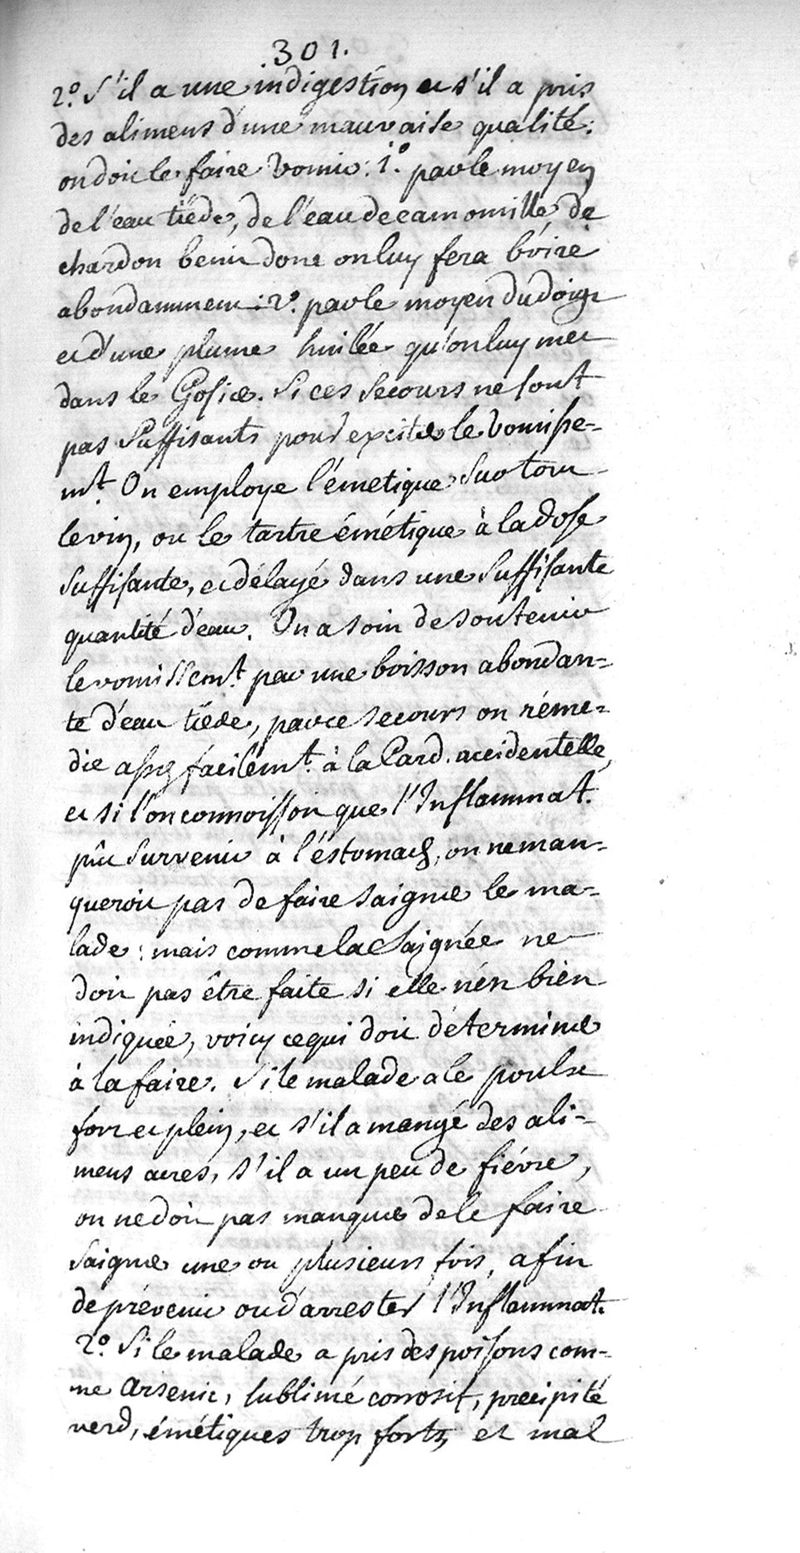 301.
2.° S'il a une indigestion et s'il a pris
des alimens d'une mauvaise qualité:
on doit le faire vomir: 1.° par le moyen
de l'eau tiéde, de l'eau de camomille de
chardon benit dont on luy fera boire
abondamment: 2.° par le moyen du doigt
et d'une plume huilée qu'on luy met
dans le Gosier. Si ces secours ne sont
pas suffisants pour exciter le vomisse-
mt. On employe l'émetique surtout
le vin, ou le tartre émétique à la dose
suffisante, et délayé dans une suffisante
quantité d'eau. On a soin de soutenir
le vomissemt. par une boisson abondan=
te d'eau tiéde, par ce secours on réme=
die assez facilemt. à la Card. accidentelle,
et si l'on connoisson que l'Inflammat.
put survenir à l'éstomach, on ne man=
queroit pas de faire saigner le ma=
lade: mais comme la saignée ne
doit pas être faite si elle n'est bien
indiquée, voicy ce qui doit déterminer
à la faire. Si le malade a le poulx
fort et plein, et s'il a mangé des ali=
mens acres, s'il a un peu de fiévre,
on ne doit pas manquer de le faire
saigner une ou plusieurs fois, afin
de prévenir ou d'arrester l'Inflammat.
2.° Si le malade a pris des poisons com=
me arsenic, sublimé corrosif, precipité
verd, émétiques trop forts et mal